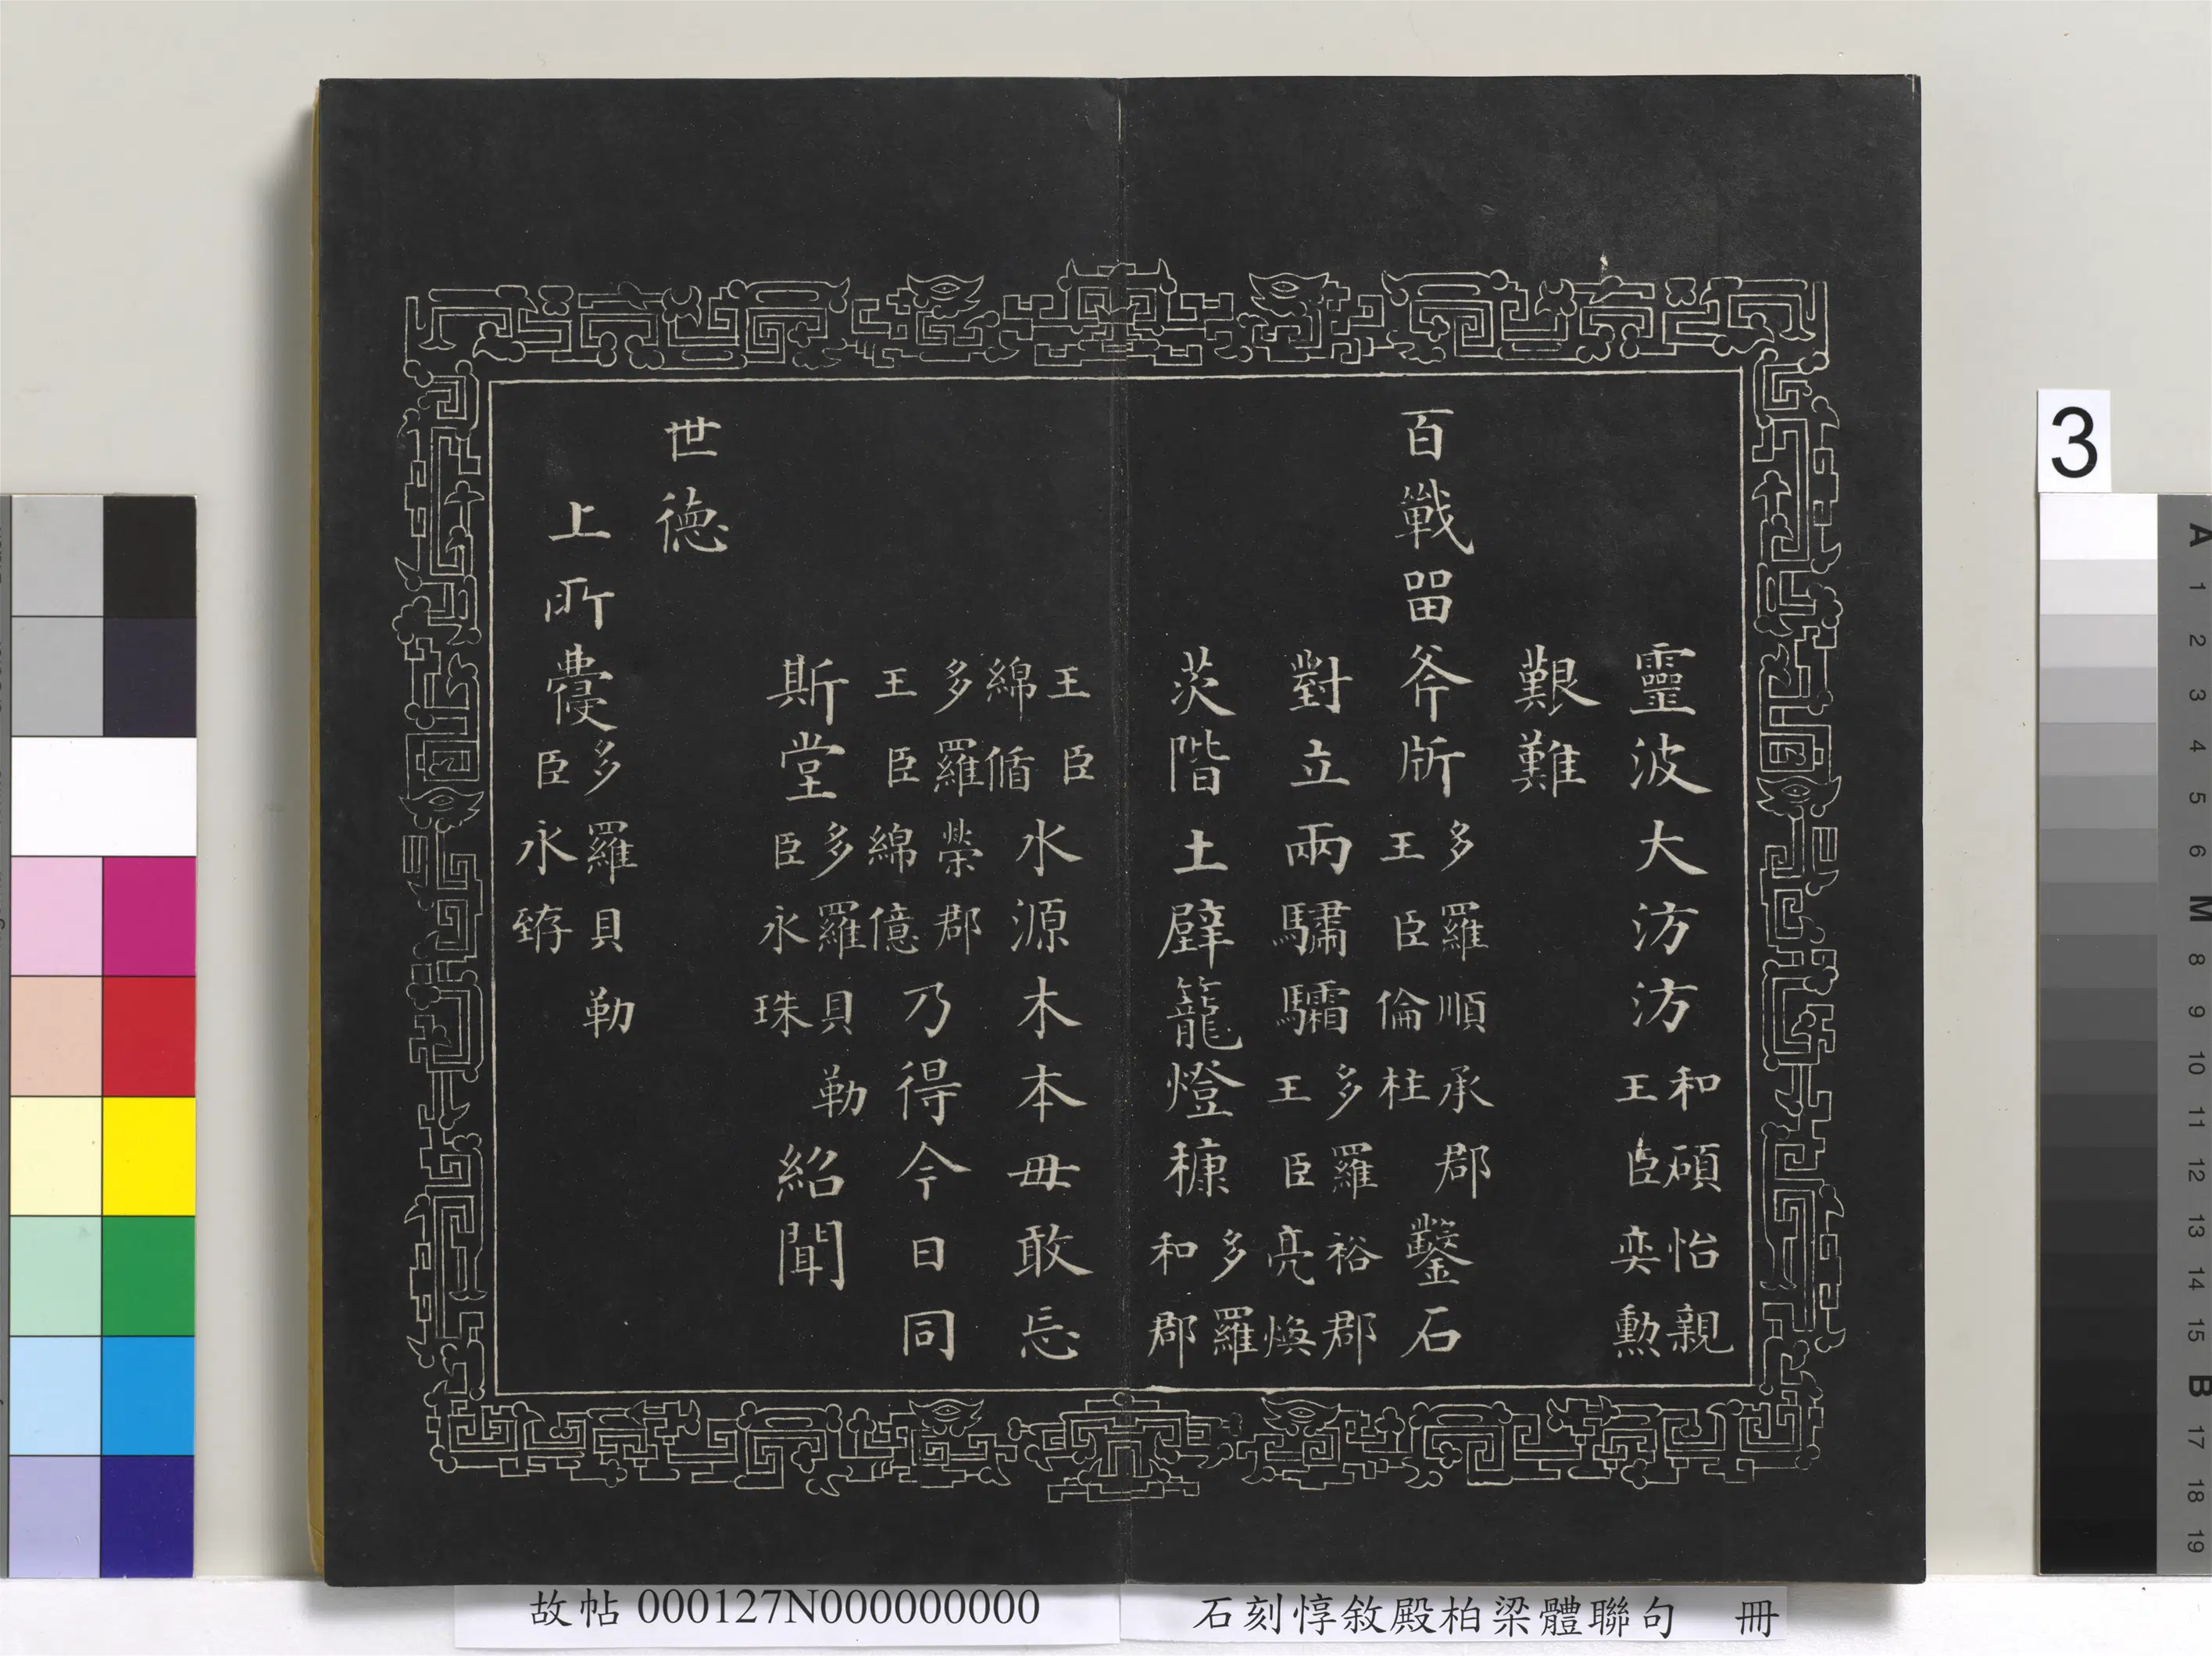 靈波大汸汸和碩怡親王臣奕勳
艱難
百戰畱斧斨多羅順承郡王臣倫柱鑿石
對立兩驌驦多羅裕郡王臣亮煥
茨階土壁籠燈糠多羅和郡
王臣綿循水源木本毋敢忘
多羅榮郡王臣綿億乃得今日同
斯堂多羅貝勒臣永珠紹聞
世德
上所蘉多羅貝勒臣永臶
故帖 000127N000000000
石刻惇敘殿柏梁體聯句 冊
3
A
1
2
3
4
5
6
M
8
9
10
11
12
13
14
15
B
17
18
19